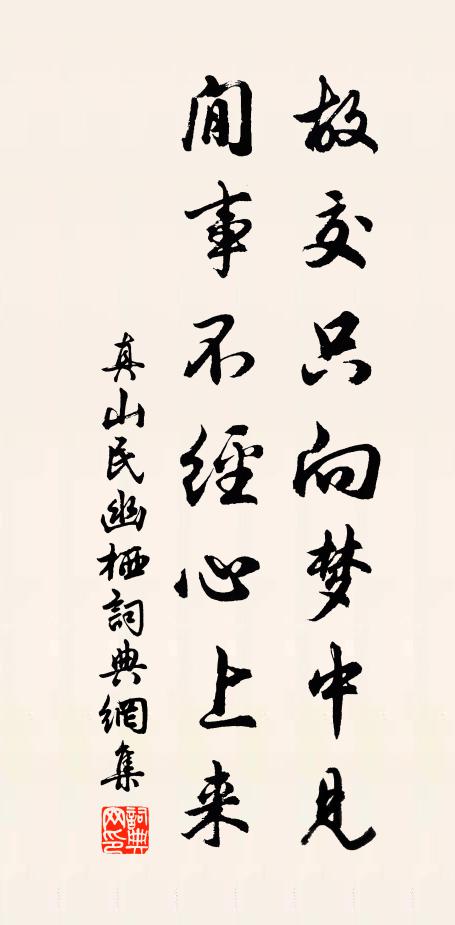 故交只向梦中见
闲事不经心上来
真山民幽栖词典網集
詞典網印